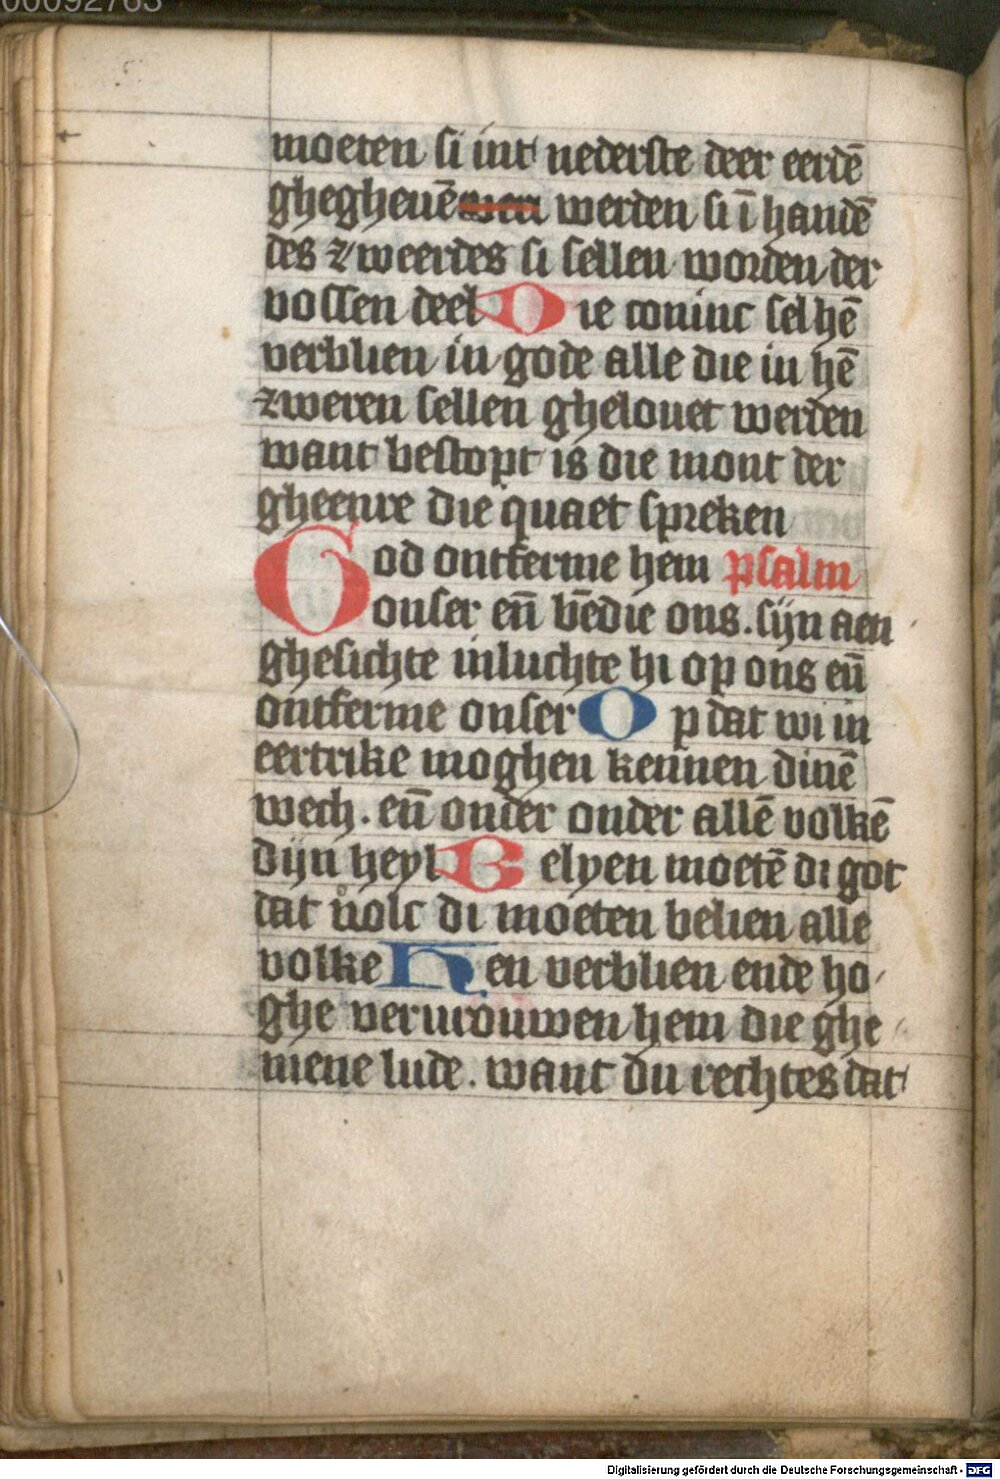 00092763
moeten si int nederste deer eerdē
ghegheuē wer werden si ī handē
des zweerdes si sellen worden der
vossen deel Die coninc sel hē
verblien in gode alle die in hē
zweren sellen ghelouet werden
want bestopt is die mont der
gheenre die quaet spreken
God ontferme hem psalm
onser eñ bēedie ons. sijn aen
ghesichte inluchte hi op ons eñ
ontferme onser Op dat wi in
eertrike moghen kennen dinē
wech. eñ onder onder allē volkē
dijn heyl Belyen moetē di got
dat uolc di moeten belien alle
volke Hen verblien ende ho
ghe verurouwen hem die ghe
mene lude. want du rechtes dat
Digitalisierung gefördert durch die Deutsche Forschungsgemeinschaft - DFG